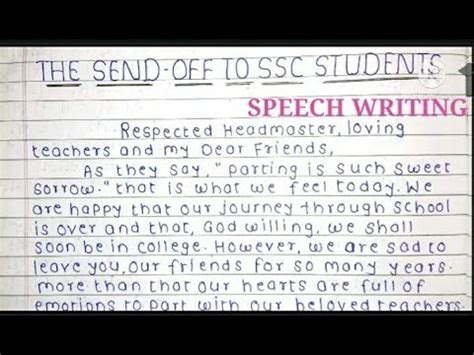 THE SEND-OFF TO SSC STUDENTS
SPEECH WRITING
Respected Headmaster, loving
teachers and my Dear Friends,
As they say, "parting is such sweet
sorrow." that is what we feel today. We
are happy that our journey through school
is over and that, God willing, we shall
soon be in college. However, we are sad to
leave you, our friends for so many years.
more than that our hearts are full of
emotions to part with our beloved teachers.